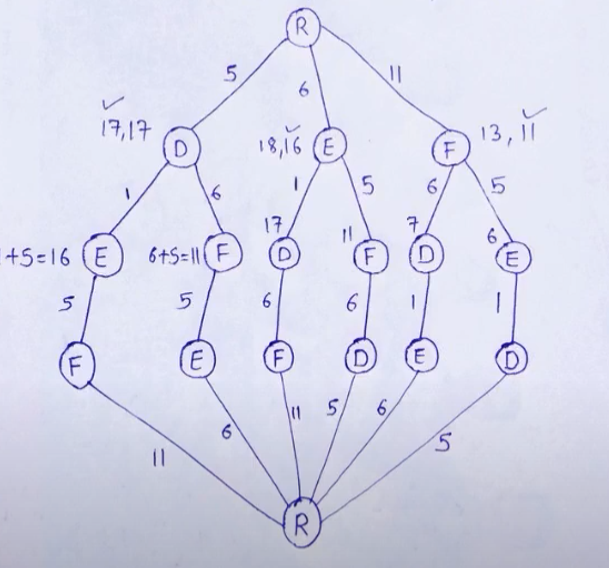 R
5 6 11
✓ ✓ ✓
17,17 D 18,16 E F 13,11
1 6 1 5 6 5
17 11 7 6
+5=16 E 6+5=11 F D F D E
5 5 6 6 1 1
F E F D E D
11 6 11 5 6 5
R